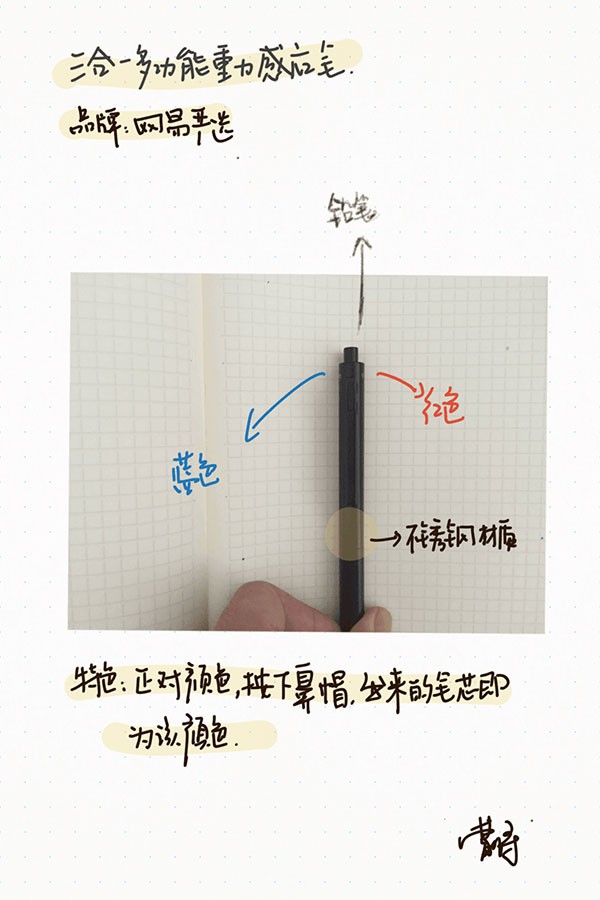 三合一多功能重力感应笔.
品牌:网易严选
铅笔
红色
蓝色
不锈钢材质
特色:正对颜色,按下笔帽,出来的笔芯即
为该颜色.